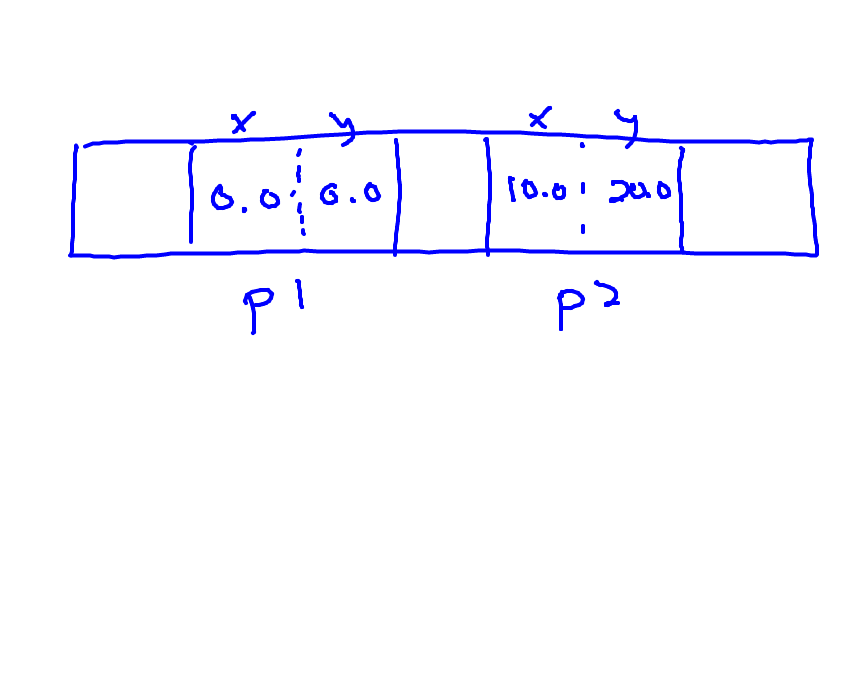 x y x y
0.0 0.0 10.0 20.0
P1 P2